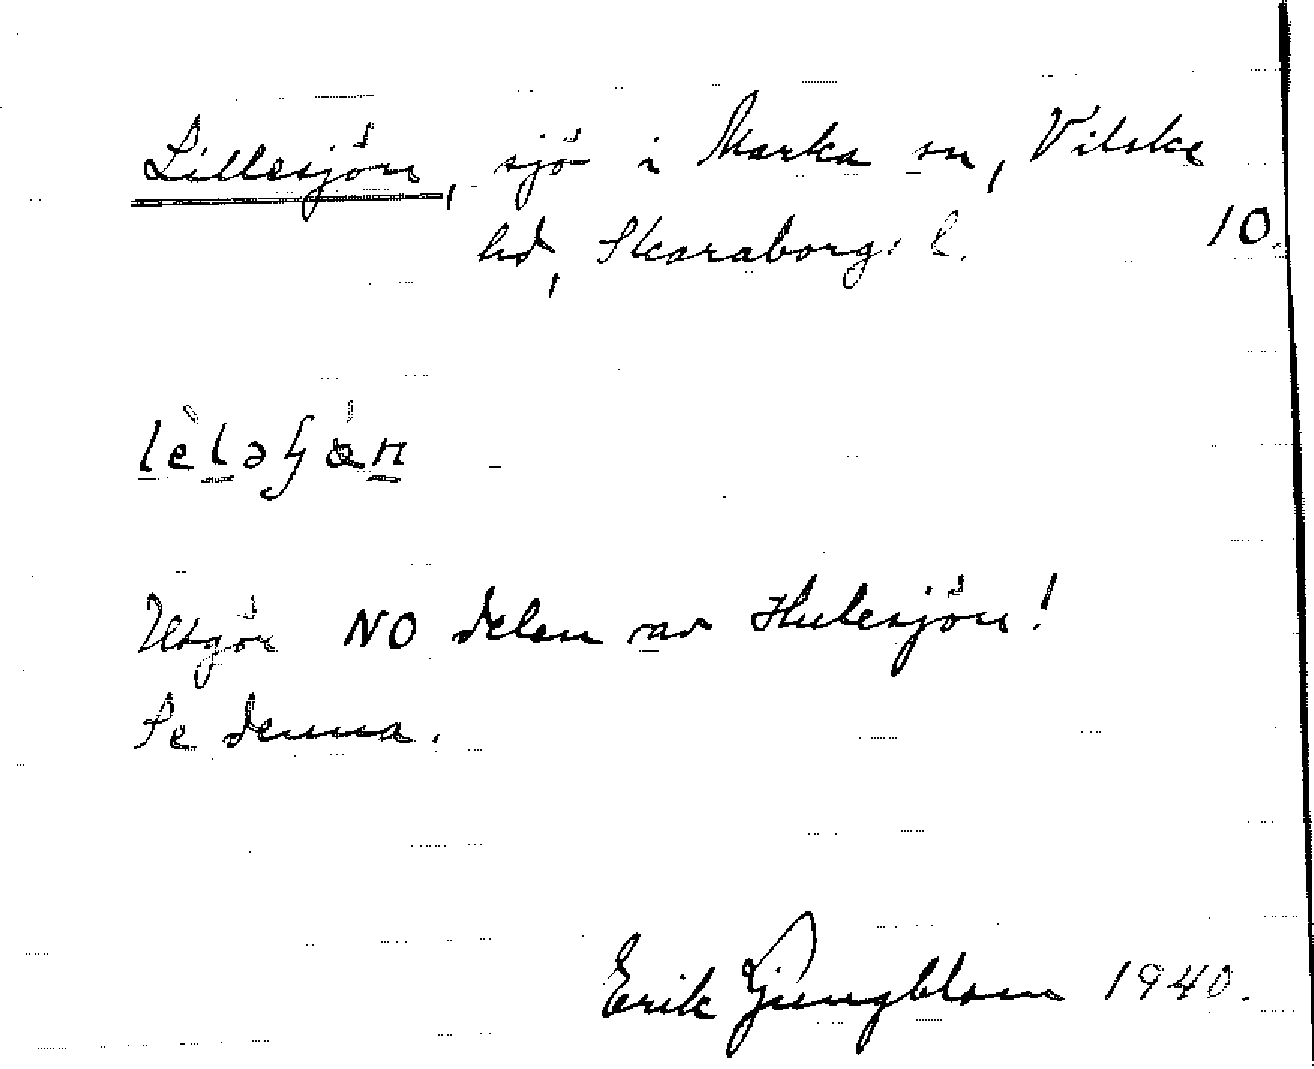 Lillesjön, sjö i Marka sn, Vilske
hd, Skaraborgs l. 10.
Utgör NO delen av Hulesjön!
Se denna.
Erik Ljungblom 1940.